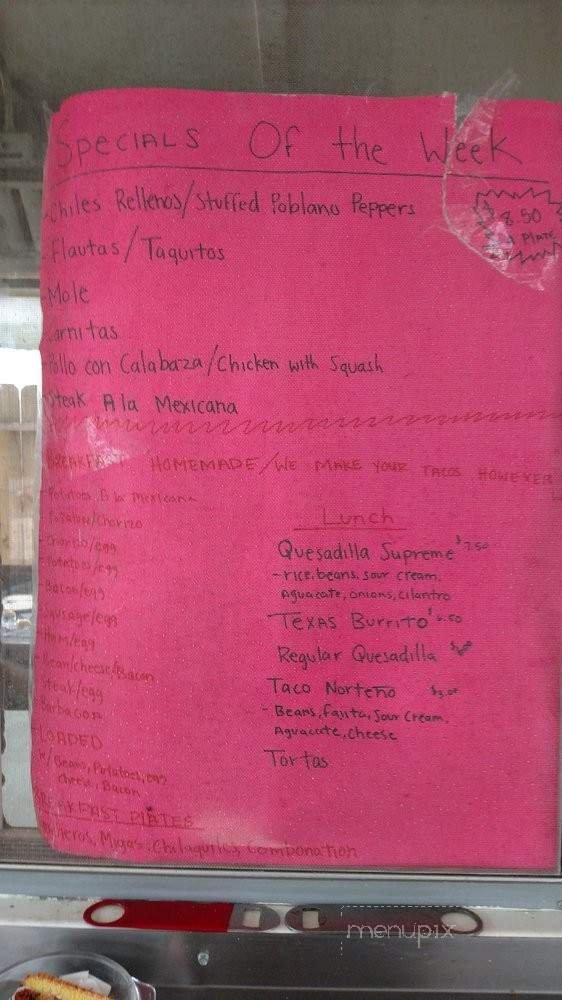 Specials Of the Week
8.50
Plate
-Chiles Rellenos/Stuffed Poblano Peppers
Flautas/Taquitos
-Mole
Carnitas
Pollo con Calabaza/Chicken with Squash
Steak A la Mexicana
BREAKFAST HOMEMADE/WE MAKE YOUR TACOS HOWEVER
-Potatoes A la mexicana
-Potatoes/Chorizo
-Chorizo/egg
-Potatoes/egg
-Bacon/egg
Sausage/egg
-Ham/egg
Bean/cheese/Bacon
Steak/egg
Barbacoa
LOADED
w/Beans, Potatoes, egg
cheese, Bacon
BREAKFAST PLATES
Migas, Chilaquiles, Combonation
Lunch
Quesadilla Supreme $7.50
-rice, beans, sour cream,
Aguacate, onions, cilantro
Texas Burrito
Regular Quesadilla
Taco Norteño
- Beans, fajita, Sour Cream,
Aguacate, cheese
Tortas
menupix